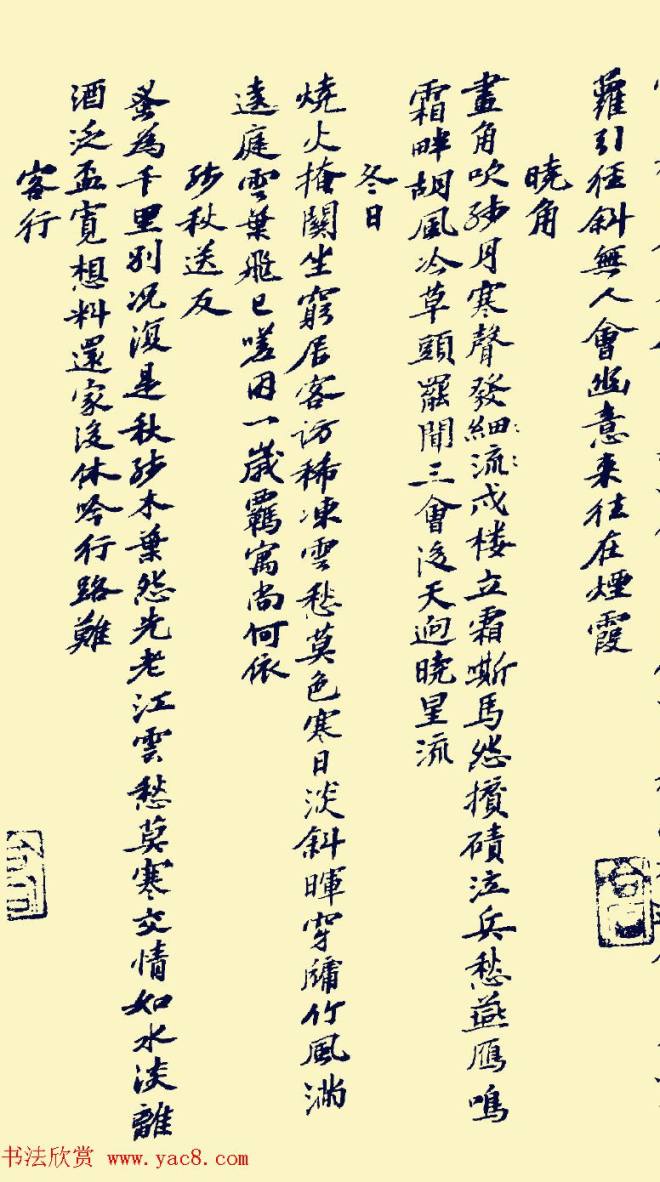 蘿引徑斜無人會幽意來往在煙霞
曉角
畫角吹殘月寒聲發細流戍楼立霜嘶馬怨攢磧泣兵愁燕鴈鳴
霜畔胡風冷草頭罷聞三會後天迥曉星流
冬日
燒火掩關坐窮居客訪稀凍雲愁莫色寒日淡斜暉穿牖竹風滿
遶庭雲葉飛已嗟周一歲羈寓尚何依
殘秋送友
蚤為千里别况復是秋殘木葉怨先老江雲愁莫寒交情如水淡離
酒泛盃寬想料還家後休吟行路難
客行
书法欣赏 www.yac8.com